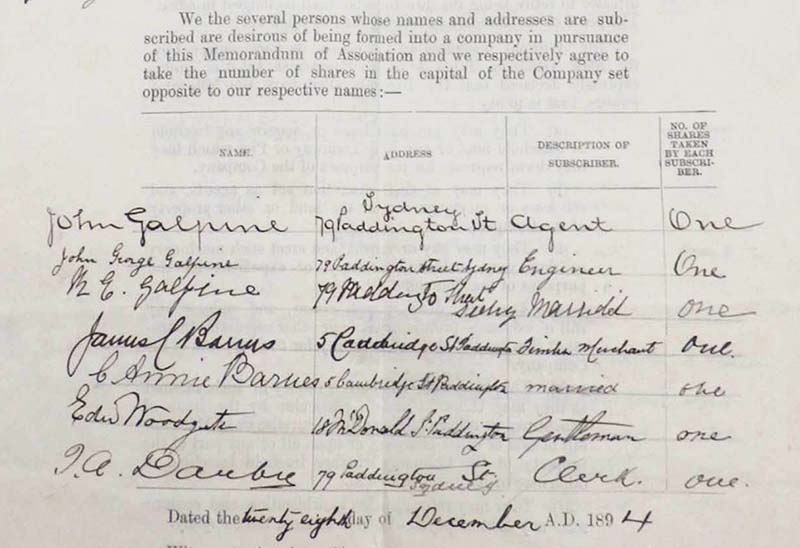 We the several persons whose names and addresses are sub-
scribed are desirous of being formed into a company in pursuance
of this Memorandum of Association and we respectively agree to
take the number of shares in the capital of the Company set
opposite to our respective names:—
NAME. ADDRESS DESCRIPTION OF SUBSCRIBER. NO. OF SHARES TAKEN BY EACH SUBSCRI-BER.
Sydney
John Galpine 79 Paddington St Agent One
John George Galpine 79 Paddington Street Sydney Engineer One
M E. Galpine 79 Paddington Street Married one
James C Barnes 5 Cambridge St Paddington Timber Merchant one.
C Annie Barnes 5 Cambridge St Paddington married one
Edw Woodgate 18 McDonald St Paddington Gentleman one
79 Paddington St. Clerk. one.
Sydney
Dated the twenty eighth day of December A.D. 1894